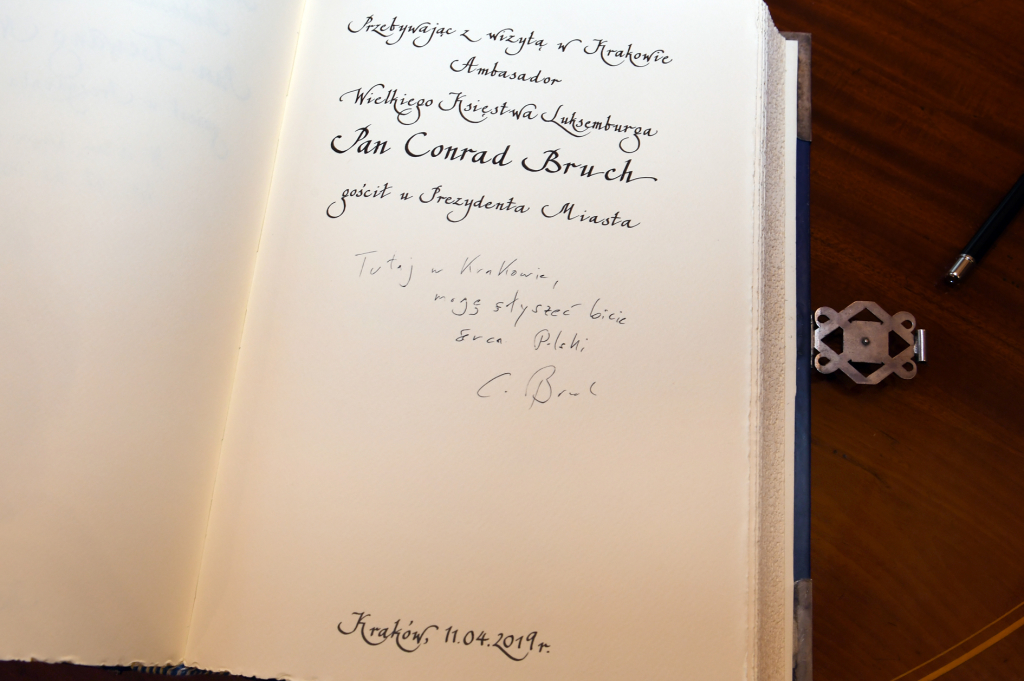 Przebywając z wizytą w Krakowie
Ambasador
Wielkiego Księstwa Luksemburga
Pan Conrad Bruch
gościł u Prezydenta Miasta
Tutaj w Krakowie,
mogę słyszeć bicie
serca Polski
C. Bruch
Kraków, 11.04.2019 r.